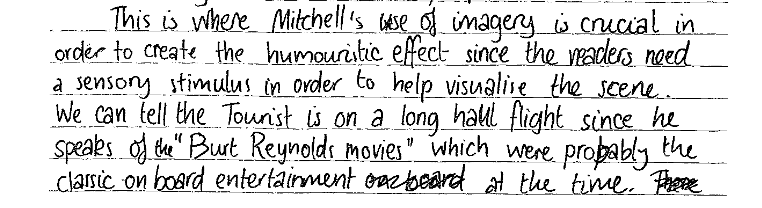 This is where Mitchell's use of imagery is crucial in
order to create the humouristic effect since the readers need
a sensory stimulus in order to help visualise the scene.
We can tell the Tourist is on a long haul flight since he
speaks of the "Burt Reynolds movies" which were probably the
classic on board entertainment onzboard at the time. There